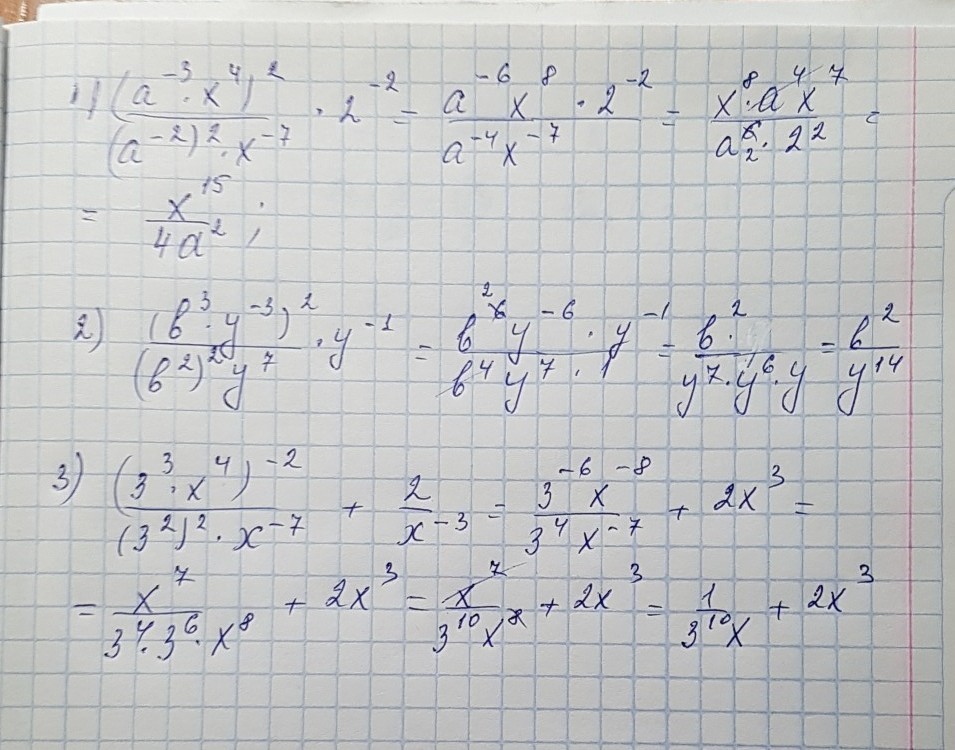 1) (a⁻³·x⁴)²/((a⁻²)²·x⁻⁷) · 2⁻² = a⁻⁶x⁸·2⁻²/(a⁻⁴x⁻⁷) = x⁸·a⁴x⁷/(a⁶·2²) =
= x¹⁵/(4a²);
2) (в³·y⁻³)²/((в²)²y⁷) · y⁻¹ = в⁶y⁻⁶·y⁻¹/(в⁴y⁷·1) = в²/(y⁷·y⁶·y) = в²/y¹⁴
3) (3³·x⁴)⁻²/((3²)²·x⁻⁷) + 2/x⁻³ = 3⁻⁶x⁻⁸/(3⁴x⁻⁷) + 2x³ =
= x⁷/(3⁴·3⁶·x⁸) + 2x³ = x⁷/(3¹⁰x⁸) + 2x³ = 1/(3¹⁰x) + 2x³